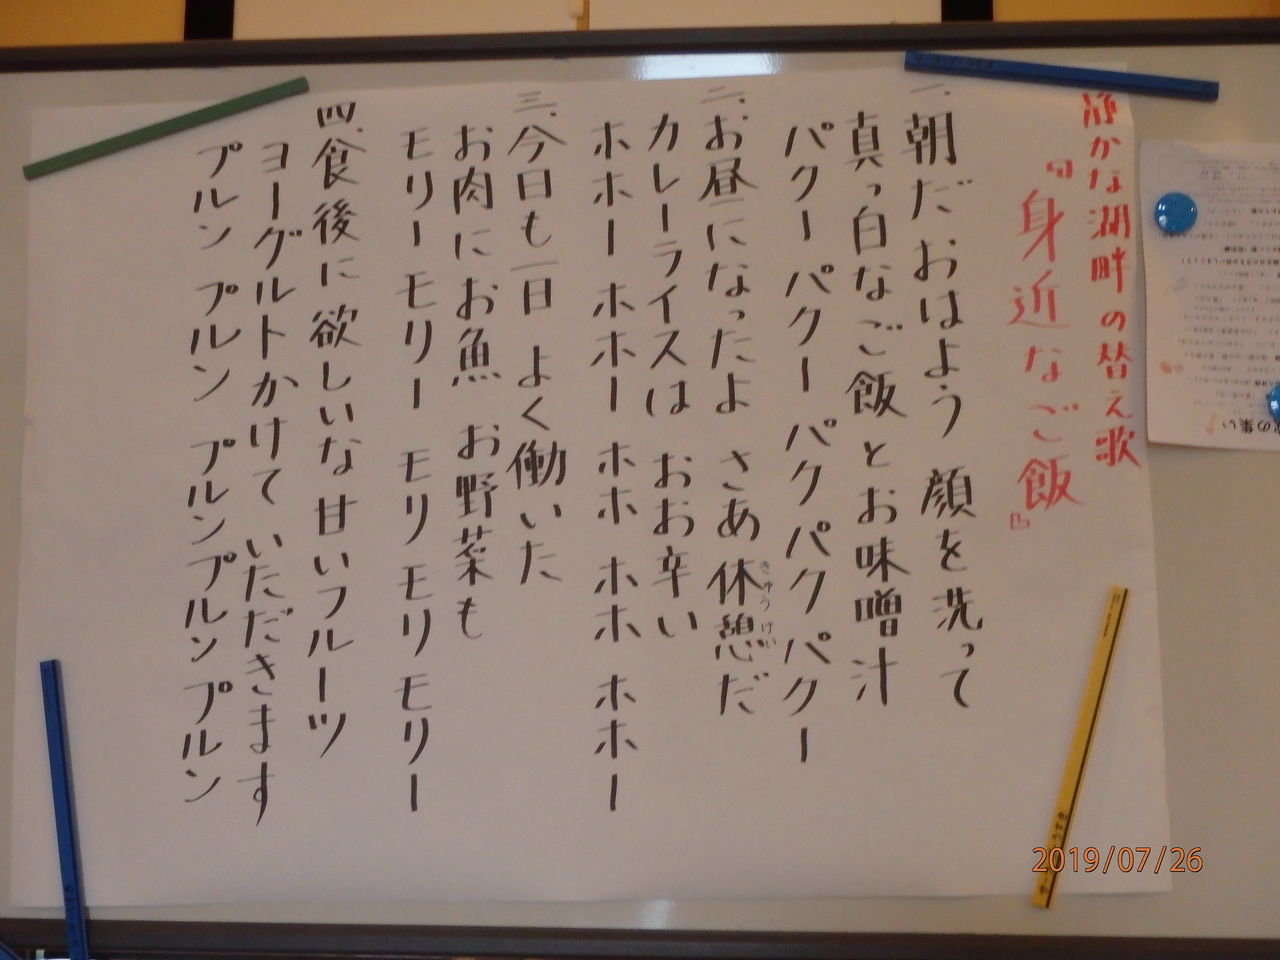 静かな湖畔の替え歌
『身近なご飯』
一、朝だ おはよう 顔を洗って
真っ白なご飯とお味噌汁
パクー パクー パクパクパクー
二、お昼になったよ さあ休憩だ
きゅうけい
カレーライスは おお辛い
ホホー ホホー ホホ ホホ ホホー
三、今日も一日 よく働いた
お肉にお魚 お野菜も
モリー モリー モリ モリ モリー
四、食後に欲しいな甘いフルーツ
ヨーグルトかけて いただきます
プルン プルン プルンプルンプルン
の集い
2019/07/26